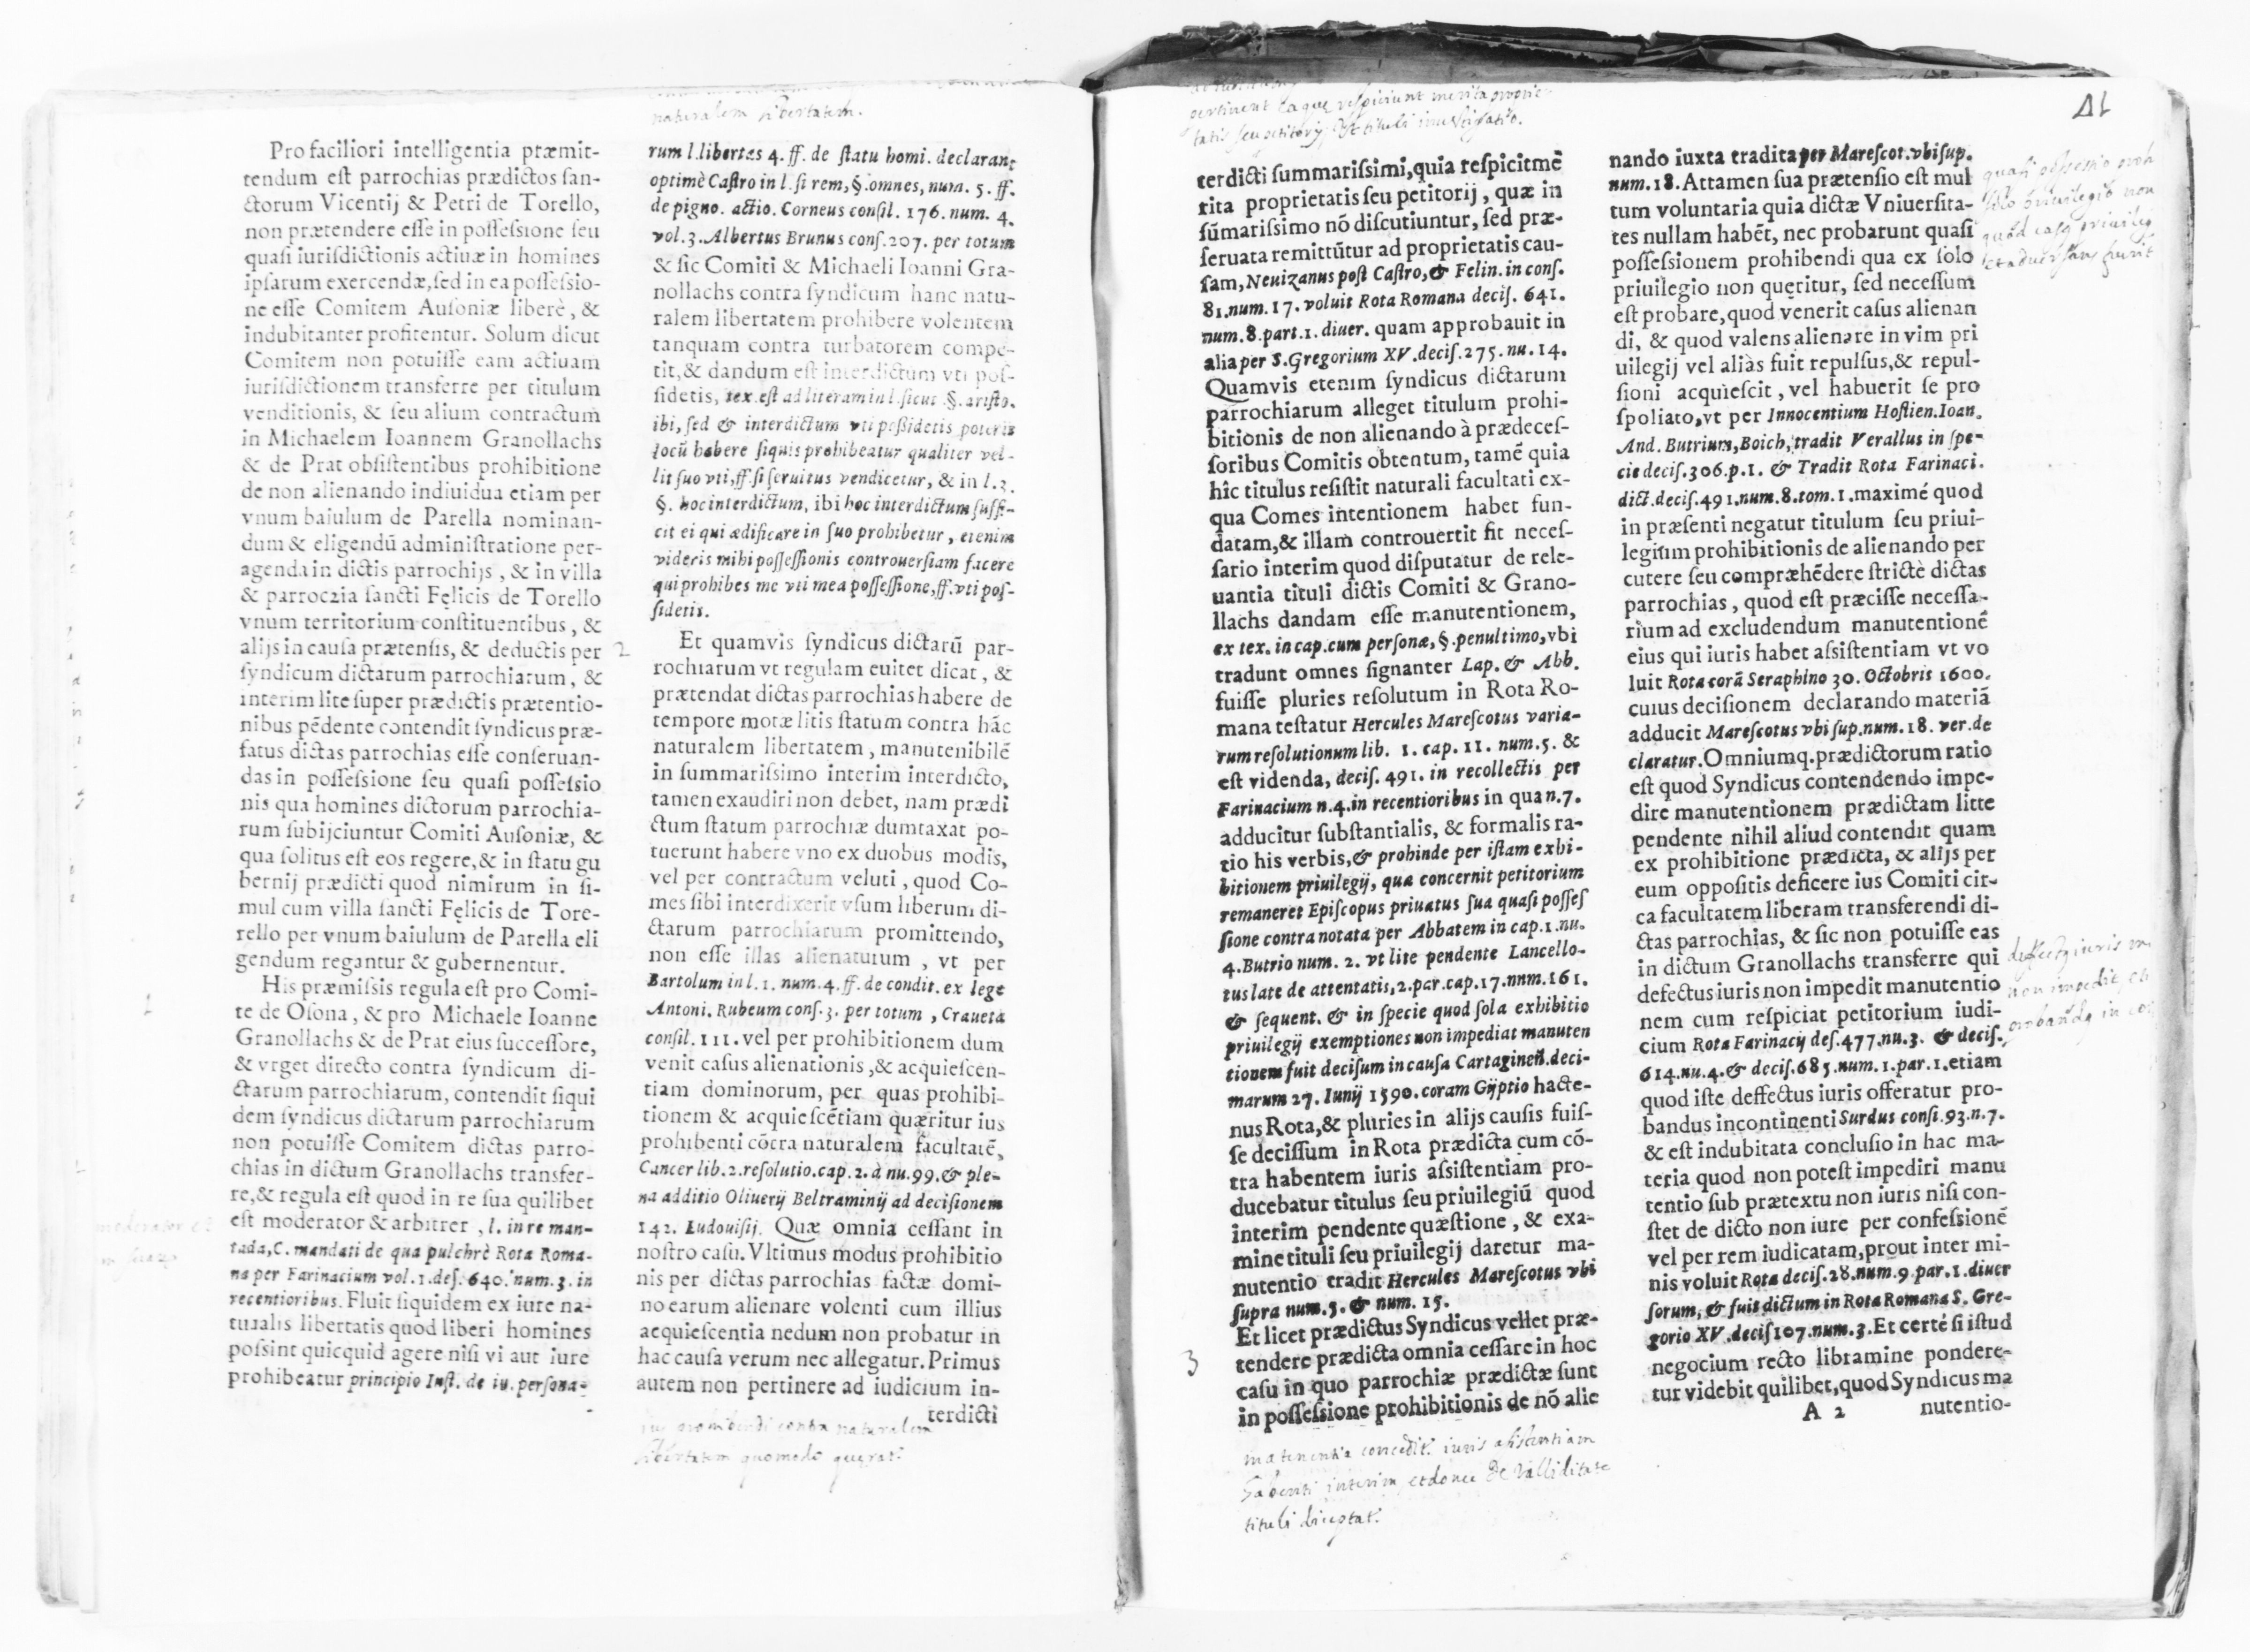 naturalem libertatem.
Pro faciliori intelligentia præmit-
tendum est parrochias prædictos ſan-
ctorum Vicentij & Petri de Torello,
non prætendere eſſe in poſſeſsione ſeu
quaſi iuriſdictionis actiuæ in homines
ipſarum exercendæ, ſed in ea poſſeſsio-
ne eſſe Comitem Auſoniæ liberè, &
indubitanter profitentur. Solum dicũt
Comitem non potuiſſe eam actiuam
iuriſdictionem transferre per titulum
venditionis, & ſeu alium contractum
in Michaelem Ioannem Granollachs
& de Prat obſiſtentibus prohibitione
de non alienando indiuidua etiam per
vnum baiulum de Parella nominan-
dum & eligendũ adminiſtratione per-
agenda in dictis parrochijs, & in villa
& parroczia ſancti Felicis de Torello
vnum territorium conſtituentibus, &
alijs in cauſa prætenſis, & deductis per
ſyndicum dictarum parrochiarum, &
interim lite ſuper prædictis prætentio-
nibus pẽdente contendit ſyndicus præ-
fatus dictas parrochias eſſe conſeruan-
das in poſſeſsione ſeu quaſi poſſeſsio
nis qua homines dictorum parrochia-
rum ſubijciuntur Comiti Auſoniæ, &
qua ſolitus eſt eos regere, & in ſtatu gu
bernij prædicti quod nimirum in ſi-
mul cum villa ſancti Felicis de Tore-
rello per vnum baiulum de Parella eli
gendum regantur & gubernentur.
1
His præmiſsis regula eſt pro Comi-
te de Oſona, & pro Michaele Ioanne
Granollachs & de Prat eius ſucceſſore,
& vrget directo contra ſyndicum di-
ctarum parrochiarum, contendit ſiqui
dem ſyndicus dictarum parrochiarum
non potuiſſe Comitem dictas parro-
chias in dictum Granollachs transfer-
re, & regula eſt quod in re ſua quilibet
eſt moderator & arbitrer, l. in re man-
tada, C. mandati de qua pulchrè Rota Roma-
na per Farinacium vol. 1. deſ. 640. num. 3. in
recentioribus. Fluit ſiquidem ex iure na-
turalis libertatis quod liberi homines
poſsint quicquid agere niſi vi aut iure
prohibeatur principio Inſt. de iu. perſona-
moderator
rum l. libertas 4. ff. de ſtatu homi. declarant
optimè Caſtro in l. ſi rem, §. omnes, num. 5. ff.
de pigno. actio. Corneus conſil. 176. num. 4.
vol. 3. Albertus Brunus conſ. 207. per totum
& ſic Comiti & Michaeli Ioanni Gra-
nollachs contra ſyndicum hanc natu-
ralem libertatem prohibere volentem
tanquam contra turbatorem compe-
tit, & dandum eſt interdictum vti poſ-
ſidetis, tex. eſt ad literam in l. ſicut §. ariſto.
ibi, ſed & interdictum vti poßidetis poteris
locũ habere ſiquis prohibeatur qualiter vel-
lit ſuo vti, ff. ſi ſeruitus vendicetur, & in l. 3.
§. hoc interdictum, ibi hoc interdictum ſuffi-
cit ei qui ædificare in ſuo prohibetur, etenim
videris mihi poſſeſſionis controuerſiam facere
qui prohibes me vti mea poſſeſſione, ff. vti poſ-
ſidetis.
2
Et quamvis ſyndicus dictarũ par-
rochiarum vt regulam euitet dicat, &
prætendat dictas parrochias habere de
tempore motæ litis ſtatum contra hãc
naturalem libertatem, manutenibilẽ
in ſummariſsimo interim interdicto,
tamen exaudiri non debet, nam prædi
ctum ſtatum parrochiæ dumtaxat po-
tuerunt habere vno ex duobus modis,
vel per contractum veluti, quod Co-
mes ſibi interdixerit vſum liberum di-
ctarum parrochiarum promittendo,
non eſſe illas alienaturum, vt per
Bartolum in l. 1. num. 4. ff. de condit. ex lege
Antoni. Rubeum conſ. 3. per totum, Craueta
conſil. 111. vel per prohibitionem dum
venit caſus alienationis, & acquieſcen-
tiam dominorum, per quas prohibi-
tionem & acquieſcẽtiam quæritur ius
prohibenti cõtra naturalem facultatẽ,
Cancer lib. 2. reſolutio. cap. 2. à nu. 99. & ple-
na additio Oliuerij Beltraminij ad deciſionem
142. Ludouiſij. Quæ omnia ceſſant in
noſtro caſu. Vltimus modus prohibitio
nis per dictas parrochias factæ domi-
no earum alienare volenti cum illius
acquieſcentia nedum non probatur in
hac cauſa verum nec allegatur. Primus
autem non pertinere ad iudicium in-
terdicti
ius prohibendi contra naturalem
libertatem quomodo querat.
pertinent ea que respiciunt merita proprie-
tatis seu petitorij
terdicti ſummariſsimi, quia reſpicit mẽ
rita proprietatis ſeu petitorij, quæ in
ſũmariſsimo nõ diſcutiuntur, ſed præ-
ſeruata remittũtur ad proprietatis cau-
ſam, Neuizanus poſt Caſtro, & Felin. in conſ.
81. num. 17. voluit Rota Romana deciſ. 641.
num. 8. part. 1. diuer. quam approbauit in
alia per S. Gregorium XV. deciſ. 275. nu. 14.
Quamvis etenim ſyndicus dictarum
parrochiarum alleget titulum prohi-
bitionis de non alienando à prædeceſ-
ſoribus Comitis obtentum, tamẽ quia
hîc titulus reſiſtit naturali facultati ex-
qua Comes intentionem habet fun-
datam, & illam controuertit fit neceſ-
ſario interim quod diſputatur de rele-
uantia tituli dictis Comiti & Grano-
llachs dandam eſſe manutentionem,
ex tex. in cap. cum perſonæ, §. penultimo, vbi
tradunt omnes ſignanter Lap. & Abb.
fuiſſe pluries reſolutum in Rota Ro-
mana teſtatur Hercules Mareſcotus varia-
rum reſolutionum lib. 1. cap. 11. num. 5. &
eſt videnda, deciſ. 491. in recollectis per
Farinacium n. 4. in recentioribus in qua n. 7.
adducitur ſubſtantialis, & formalis ra-
tio his verbis, & prohinde per iſtam exhi-
bitionem priuilegij, qua concernit petitorium
remaneret Epiſcopus priuatus ſua quaſi poſſeſ
ſione contra notata per Abbatem in cap. 1. nu.
4. Butrio num. 2. vt lite pendente Lancello-
tus late de attentatis, 2. par. cap. 17. nnm. 161.
& ſequent. & in ſpecie quod ſola exhibitio
priuilegij exemptiones non impediat manuten
tionem fuit deciſum in cauſa Cartaginẽn. deci-
marum 27. Iunij 1590. coram Gÿptio hacte-
nus Rota, & pluries in alijs cauſis fuiſ-
ſe deciſſum in Rota prædicta cum cõ-
tra habentem iuris aſsiſtentiam pro-
ducebatur titulus ſeu priuilegiũ quod
interim pendente quæſtione, & exa-
mine tituli ſeu priuilegij daretur ma-
nutentio tradit Hercules Mareſcotus vbi
ſupra num. 5. & num. 15.
3
Et licet prædictus Syndicus vellet præ-
tendere prædicta omnia ceſſare in hoc
caſu in quo parrochiæ prædictæ ſunt
in poſſeſsione prohibitionis de nõ alie
manenentia concedit. iuris asistentiam
habenti interim et donec de validitate
tituli disceptat.
nando iuxta tradita per Mareſcot. vbi ſup.
num. 18. Attamen ſua prætenſio eſt mul
tum voluntaria quia dictæ Vniuerſita-
tes nullam habẽt, nec probarunt quaſi
poſſeſsionem prohibendi qua ex ſolo
priuilegio non quęritur, ſed neceſſum
eſt probare, quod venerit caſus alienan
di, & quod valens alienare in vim pri
uilegij vel aliàs fuit repulſus, & repul-
ſioni acquieſcit, vel habuerit ſe pro
ſpoliato, vt per Innocentium Hoſtien. Ioan.
And. Butrium, Boich, tradit Verallus in ſpe-
cie deciſ. 306. p. 1. & Tradit Rota Farinaci.
dict. deciſ. 491. num. 8. tom. 1. maximé quod
in præſenti negatur titulum ſeu priui-
legium prohibitionis de alienando per
cutere ſeu compræhẽdere ſtrictè dictas
parrochias, quod eſt præciſſe neceſſa-
rium ad excludendum manutentionẽ
eius qui iuris habet aſsiſtentiam vt vo
luit Rota corã Seraphino 30. Octobris 1600.
cuius deciſionem declarando materiã
adducit Mareſcotus vbi ſup. num. 18. ver. de
claratur. Omniumq. prædictorum ratio
eſt quod Syndicus contendendo impe-
dire manutentionem prædictam litte
pendente nihil aliud contendit quam
ex prohibitione prædicta, & alijs per
eum oppoſitis deficere ius Comiti cir-
ca facultatem liberam transferendi di-
ctas parrochias, & ſic non potuiſſe eas
in dictum Granollachs transferre qui
defectus iuris non impedit manutentio
nem cum reſpiciat petitorium iudi-
cium Rota Farinacij deſ. 477. nu. 3. & deciſ.
614. nu. 4. & deciſ. 685. num. 1. par. 1. etiam
quod iſte deffectus iuris offeratur pro-
bandus incontinenti Surdus conſi. 93. n. 7.
& eſt indubitata concluſio in hac ma-
teria quod non poteſt impediri manu
tentio ſub prætextu non iuris niſi con-
ſtet de dicto non iure per confeſsionẽ
vel per rem iudicatam, prout inter mi-
nis voluit Rota deciſ. 28. num. 9. par. 1. diuer
ſorum, & fuit dictum in Rota Romana S. Gre-
gorio XV. deciſ 107. num. 3. Et certé ſi iſtud
negocium recto libramine pondere-
tur videbit quilibet, quod Syndicus ma
A 2 nutentio-
quasi possessio
solo priuilegio non
deffectus iuris
non impedit
probanda in